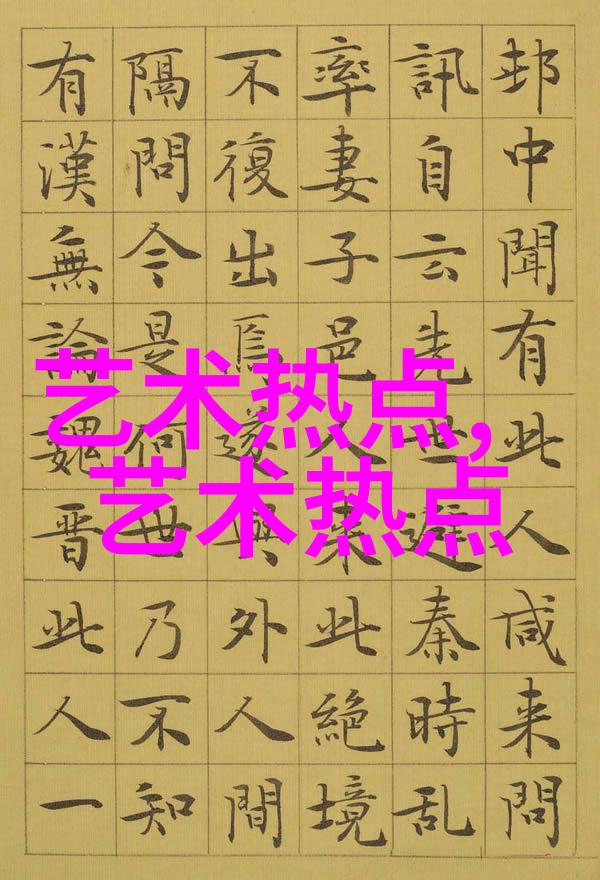 邨中聞有此人咸来問
訊自云先世避秦時乱
率妻子邑人来此絶境
不復出焉遂與外人間
隔問今是何世乃不知
有漢無論魏晋此人一
艺术热点,
艺术热点